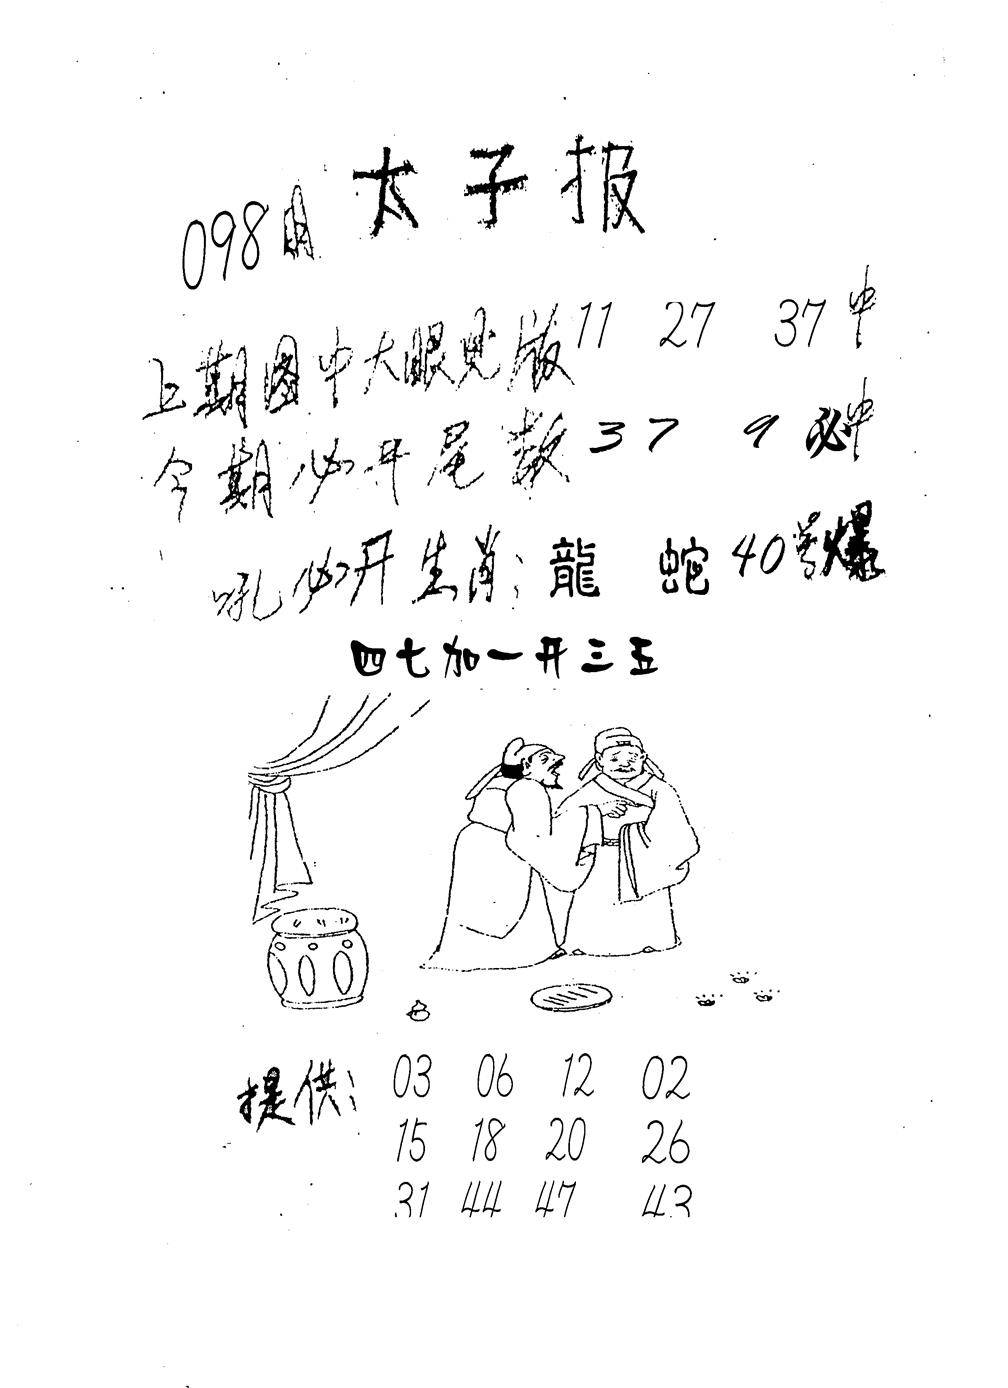 太子报
098期
上期图中大眼见版 11 27 37 中
今期必开尾数 3 7 9 必中
吼必开生肖: 龍 蛇 40号爆
四七加一开三五
提供: 03 06 12 02
15 18 20 26
31 44 47 43